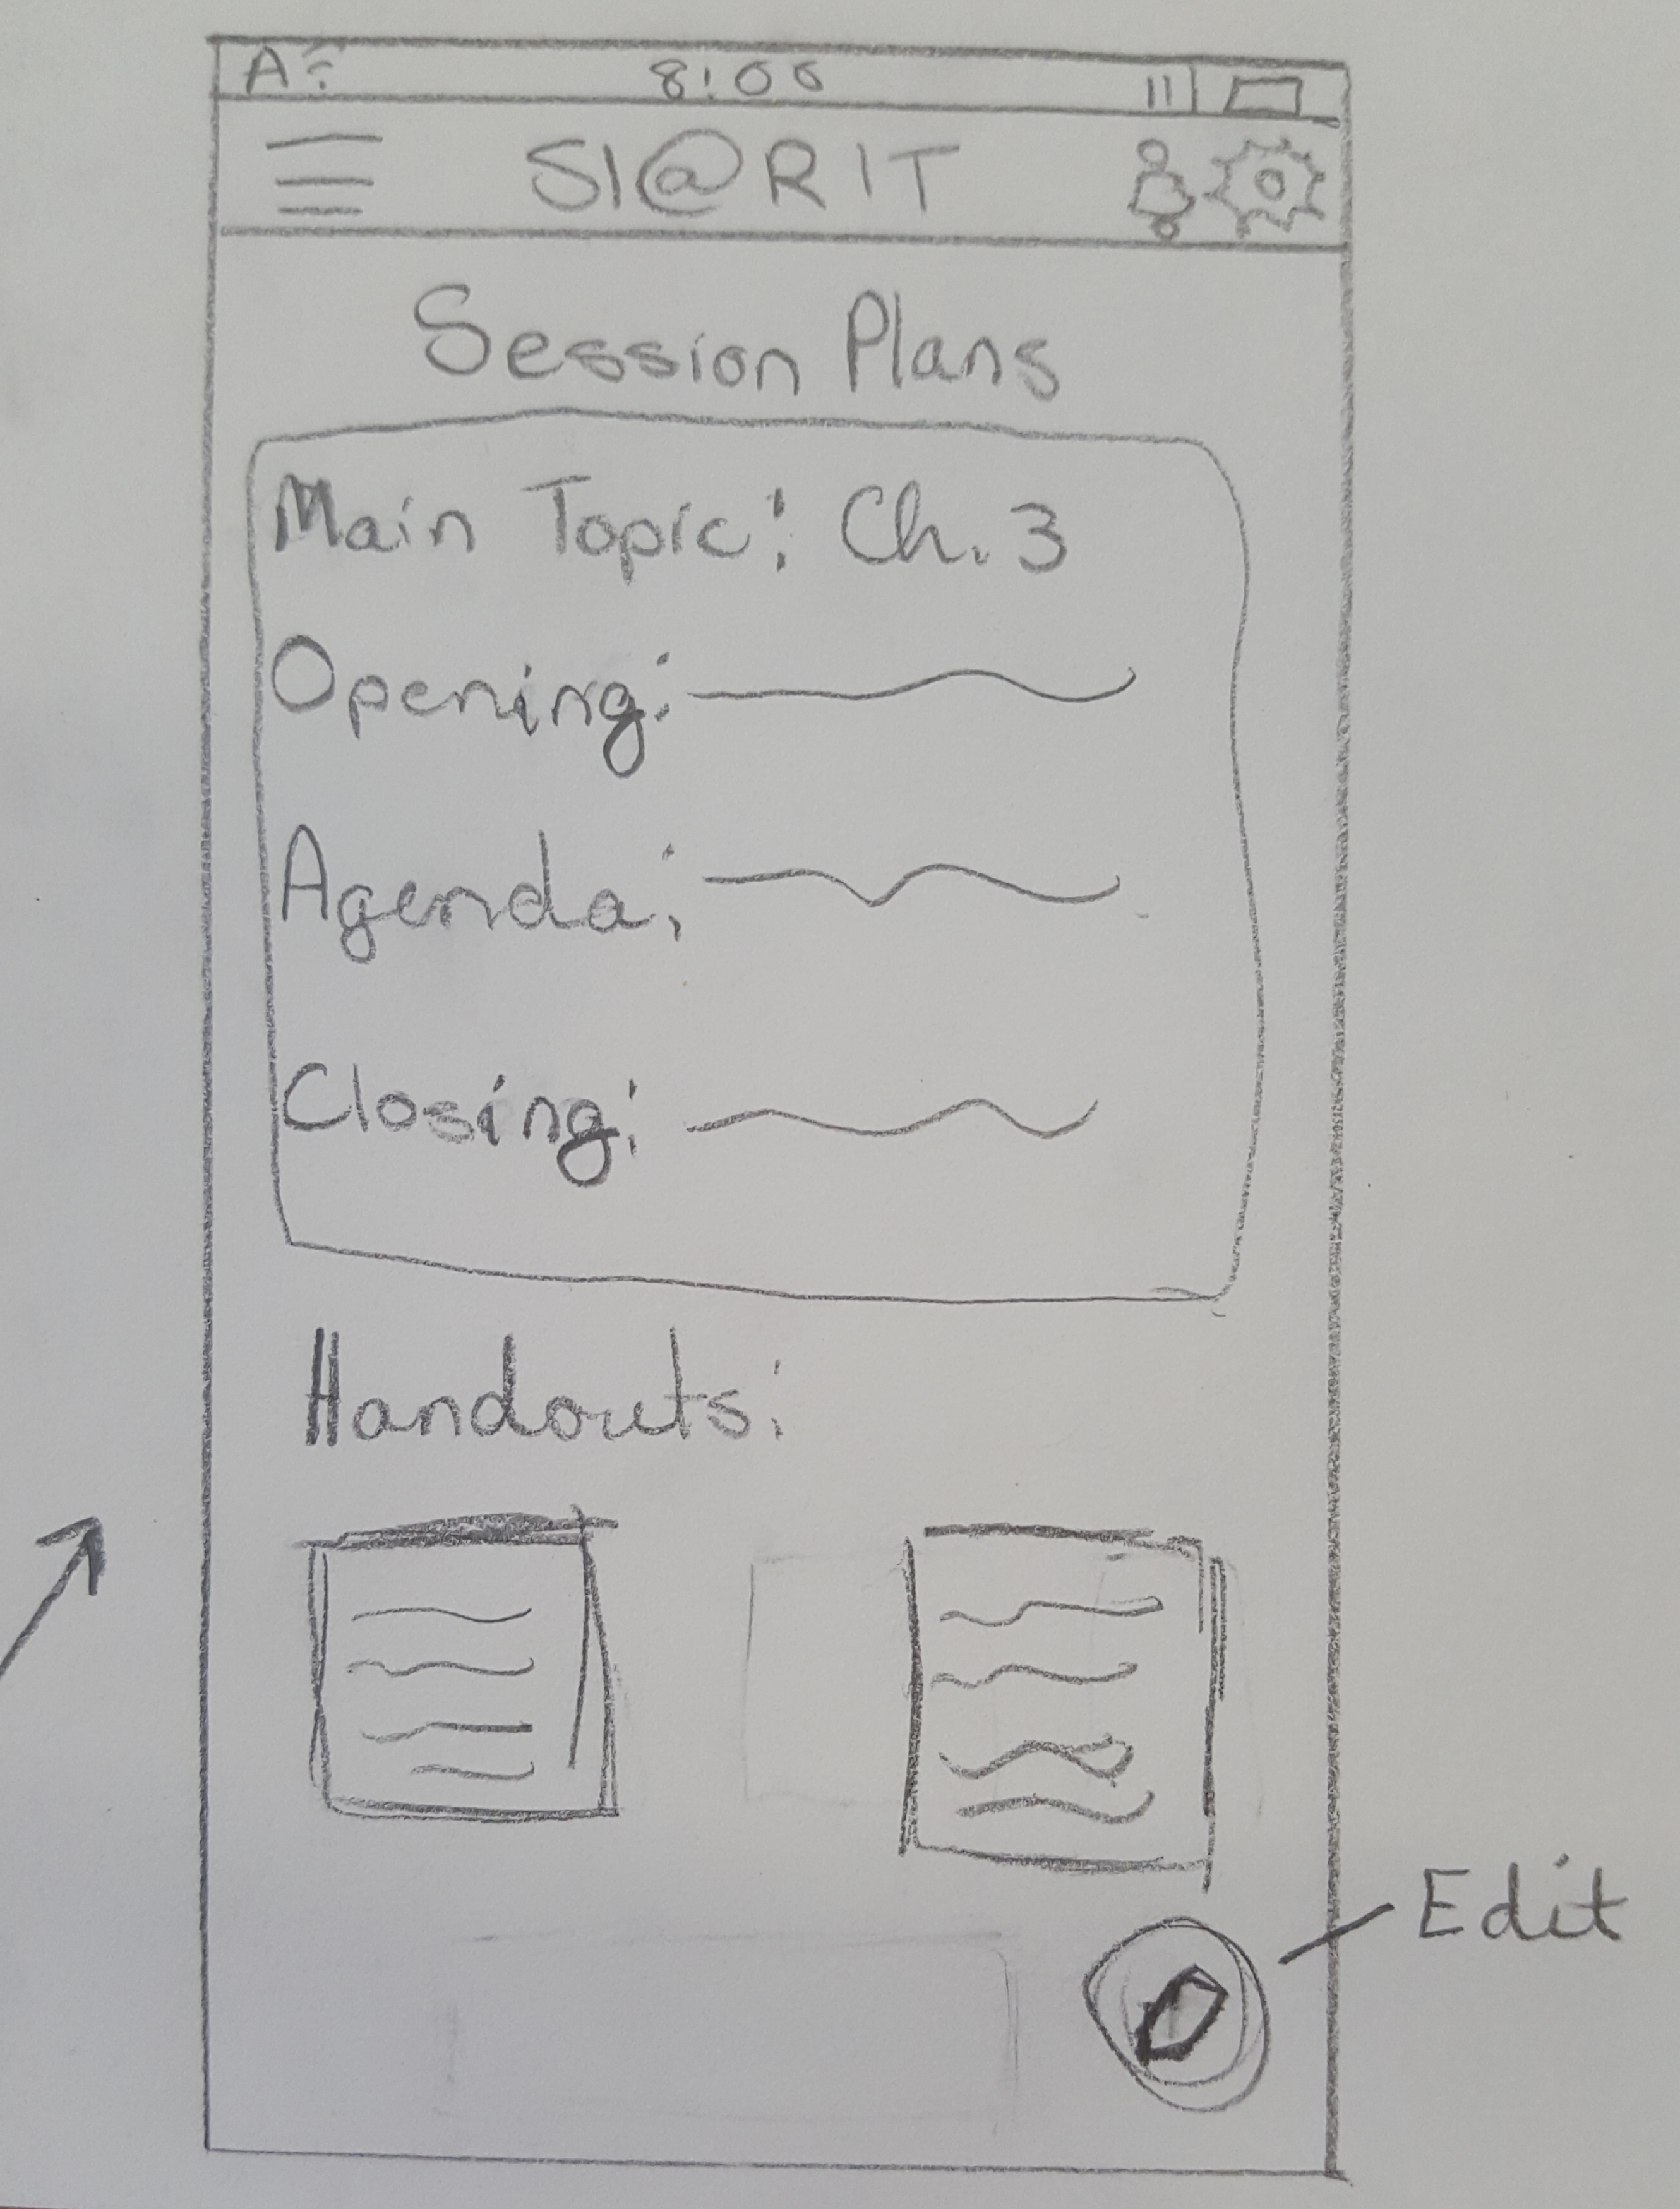 A 8:00
SI@RIT
Session Plans
Main Topic: Ch. 3
Opening:
Agenda:
Closing:
Handouts:
Edit